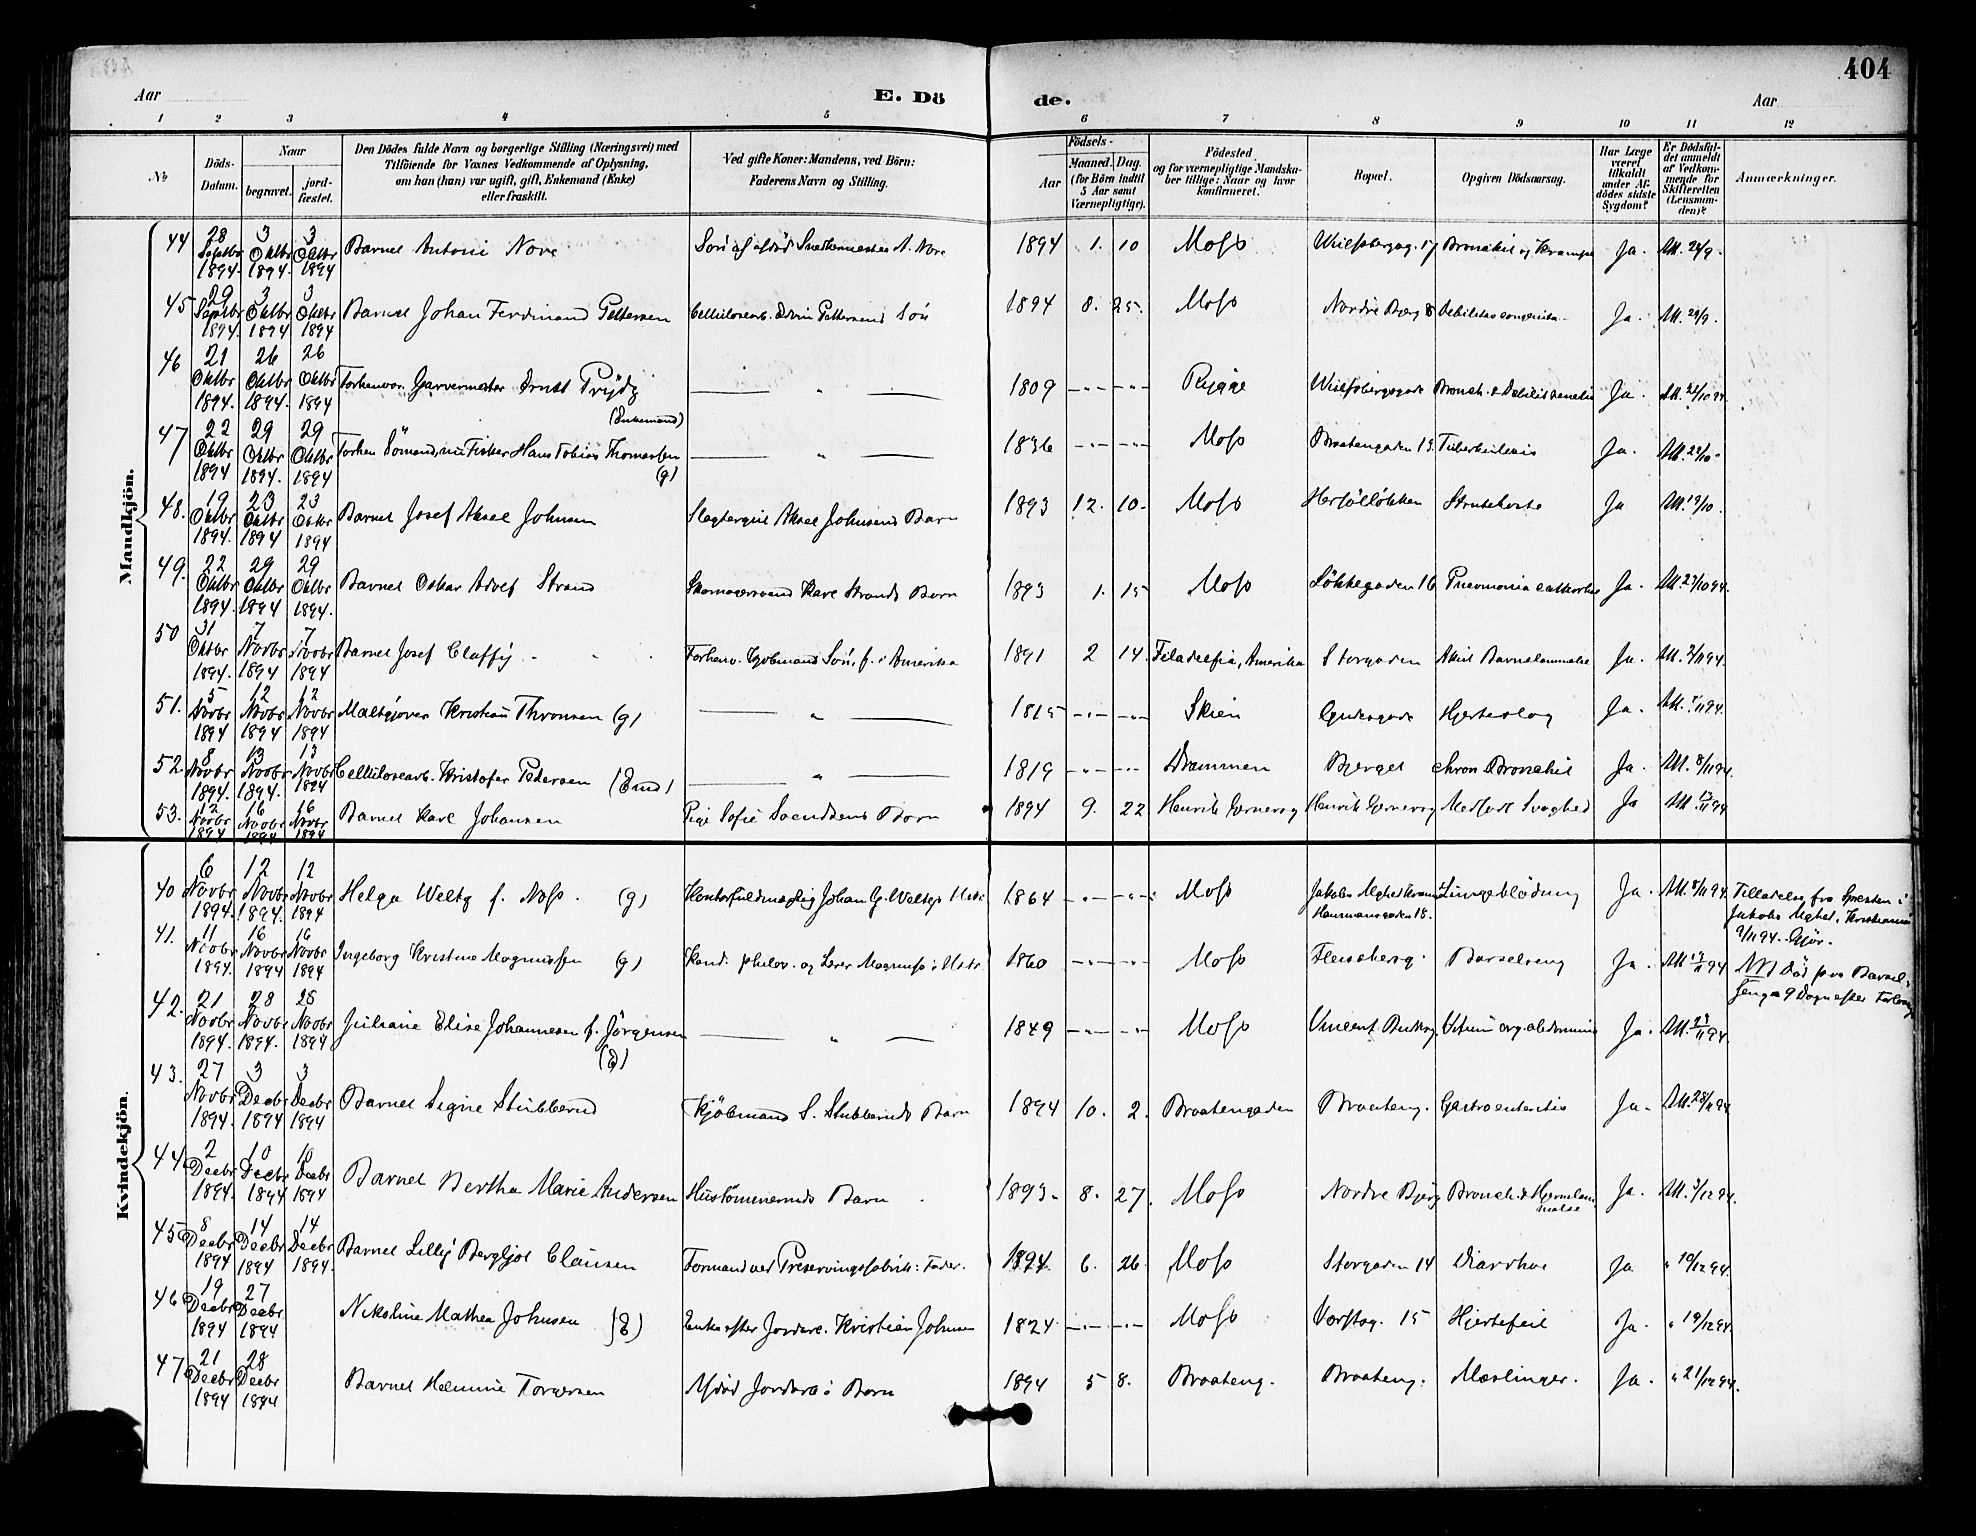 404
Aar
E. Dö
de.
Aar
1 2 3 4 5 6 7 8 9 10 11 12
No
Döds-
Datum.
Naar
begravet.
jord-
fæstet.
Den Dödes fulde Navn og borgerlige Stilling (Næringsvei) med
Tilföiende for Voxnes Vedkommende af Oplysning,
om han (hun) var ugift, gift, Enkemand (Enke)
eller fraskilt.
Ved gifte Koner: Mandens, ved Börn:
Faderens Navn og Stilling.
Födsels-
Aar
Maaned. Dag.
(for Börn indtil
5 Aar samt
Værnepligtige).
Födested
og for værnepligtige Mandskaber
tillige: Naar og hvor
konfirmeret.
Bopæl.
Opgiven Dödsaarsag.
Har Læge
været
tilkaldt
under Afdödes
sidste
Sygdom?
Er Dödsfaldet
anmeldt
af Vedkommende
for
Skifteretten
(Lensmanden)?
Anmærkninger.
Mandkjön.
44 28 Septbr 1894. 3 Oktbr 1894. 3 Oktbr 1894 Barnet Antoni Nore Sön af Snedkermester A. Nore 1894 1. 10 Moss 17 Bronchit og Krampe Ja. Att. 29/9.
45 29 Septbr 1894 3 Oktbr 1894 3 Oktbr 1894 Barnet Johan Ferdinand Pettersen Cellulosearb. Edvin Pettersens Sön 1894 8. 25. Moss Nordre Bjerg 8 Debilitas congenita Ja. Att. 29/9.
46 21 Oktbr 1894. 26 Oktbr 1894. 26 Oktbr 1894 Forhenvær. Garvermester Ernst Prydz (Enkemand) — " — 1809 Rygge Bronch. & Debilitas senilis Ja. Att. 22/10 94
47 22 Oktbr 1894 29 Oktbr 1894. 29 Oktbr 1894 Forhen Sömand, nu Fisker Hans Tobias Thomassen (g) — " — 1836 Moss Braatengaden 13. Tuberkulosis Ja. Att. 22/10.
48. 19 Oktbr 1894. 23 Oktbr 1894 23 Oktbr 1894 Barnet Josef Aksel Johnsen Aksel Johnsens Barn 1893 12. 10. Moss Strubehoste Ja Att. 19/10.
49. 22 Oktbr 1894. 29 Oktbr 1894 29 Oktbr 1894. Barnet Oskar Adolf Strand Skomagersvend Karl Strands Barn 1893 1. 15 Moss Løkkegaden 16 Pneumonia Ja. Att. 23/10 94.
50 31 Oktbr 1894. 7 Novbr 1894 7 Novbr 1894 Barnet Josef Claffy Forhenv. Kjøbmands Sön, f. i Amerika 1891 2 14. Filadelfia, Amerika Storgaden Akut Ja. Att. 2/11 94.
51. 5 Novbr 1894 12 Novbr 1894 12 Novbr 1894 Kristian Thronsen (g) — " — 1815 Skien Gudesgade Hjerteslag Ja. Att. 7/11 94.
52. 8 Novbr 1894. 13 Novbr 1894. 13 Novbr 1894 Cellulosearb. Kristofer Pedersen (Emd) — " — 1819 Drammen Bjerget chron. Bronchit Ja. Att. 8/11 94.
53. 12 Novbr 1894 16 Novbr 1894 16 Novbr 1894 Barnet Karl Johansen Pige Sofie Svendsens Barn 1894 9. 22 Henrik Gernersg Henrik Gernersg Medfödt Svaghed Ja Att. 13/11 94
Kvindekjön.
40 6 Novbr 1894. 12 Novbr 1894. 12 Novbr 1894 Helga Weltz f. Noss. (g) Kontorfuldmægtig Johan G. Weltz's 1864 Moss Jakobs Mghed Hausmannsgaden 18. Lungeblödning Ja. Att. 8/11 94. Tilladelse fra Presten i
Jakobs Mghed, Kristiania
9/11 94.
41. 11 Novbr 1894. 16 Novbr 1894 16 Novbr 1894 Ingeborg Kristine Magnussen (g) Kand. philos. og Lærer 1860 Moss Fleischersg. Barselseng Ja. Att. 13/11 94 NB Död paa Barsel-
seng 9 Dage efter Forløsn.
42. 21 Novbr 1894. 28 Novbr 1894. 28 Novbr 1894 Juliane Elise Johannesen f. Jörgensen (E) — " — 1849 Moss Vincent Vitium org. abdominis Ja. Att. 23/11 94.
43. 27 Novbr 1894. 3 Decbr 1894 3 Decbr 1894 Barnet Signe Stubberud Kjöbmand S. Stubberuds Barn 1894 10. 2. Braatengaden Braateng. Gastroenteritis Ja. Att. 28/11 94.
44. 2 Decbr 1894. 10 Decbr 1894 10 Decbr 1894 Barnet Bertha Marie Andersen Hustömmermds Barn 1893. 8. 27. Moss Nordre Bjerg Bronch. & Ja. Att. 3/12 94.
45 8 Decbr 1894 14 Decbr 1894 14 Decbr 1894. Barnet Lilly Bergljot Clausen Formand ved Preservingsfabrik: Fader. 1894 6. 26. Moss Storgaden 14 Diarrhoe Ja " 10/12 94.
46 19 Decbr 1894 27 Decbr 1894 Nikoline Mathea Johnsen (E) Enke efter Jordarb. Kristian Johnsen 1824 Moss 15 Hjertefeil Ja. " 19/12 94.
47 21 Decbr 1894 28 Decbr 1894 Barnet Helmine Torgersen Afdöd Jordarb's Barn 1894 5 8. Braateng. Braateng. Mæslinger. Ja. " 21/12 94.